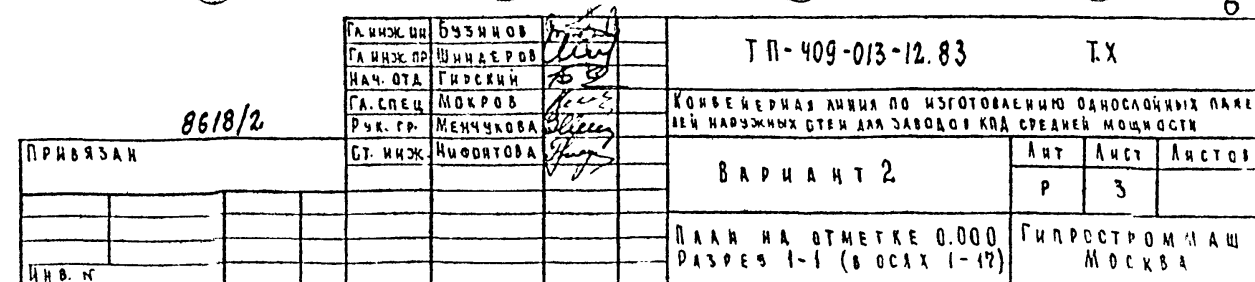 8
Гл. инж. ин Бузинов
Гл инж пр Шиндеров
Нач. отд Гирский
Гл. спец Мокров
Рук. гр. Менчукова
Ст. инж. Нифонтова
8618/2
Привязан
Инв. №
ТП-409-013-12.83 Т.Х
Конвейерная линия по изготовлению однослойных пане
лей наружных стен для заводов КПД средней мощности
Вариант 2
Лит Лист Листов
Р 3
План на отметке 0.000
Разрез 1-1 (в осях 1-17)
Гипростроммаш
Москва